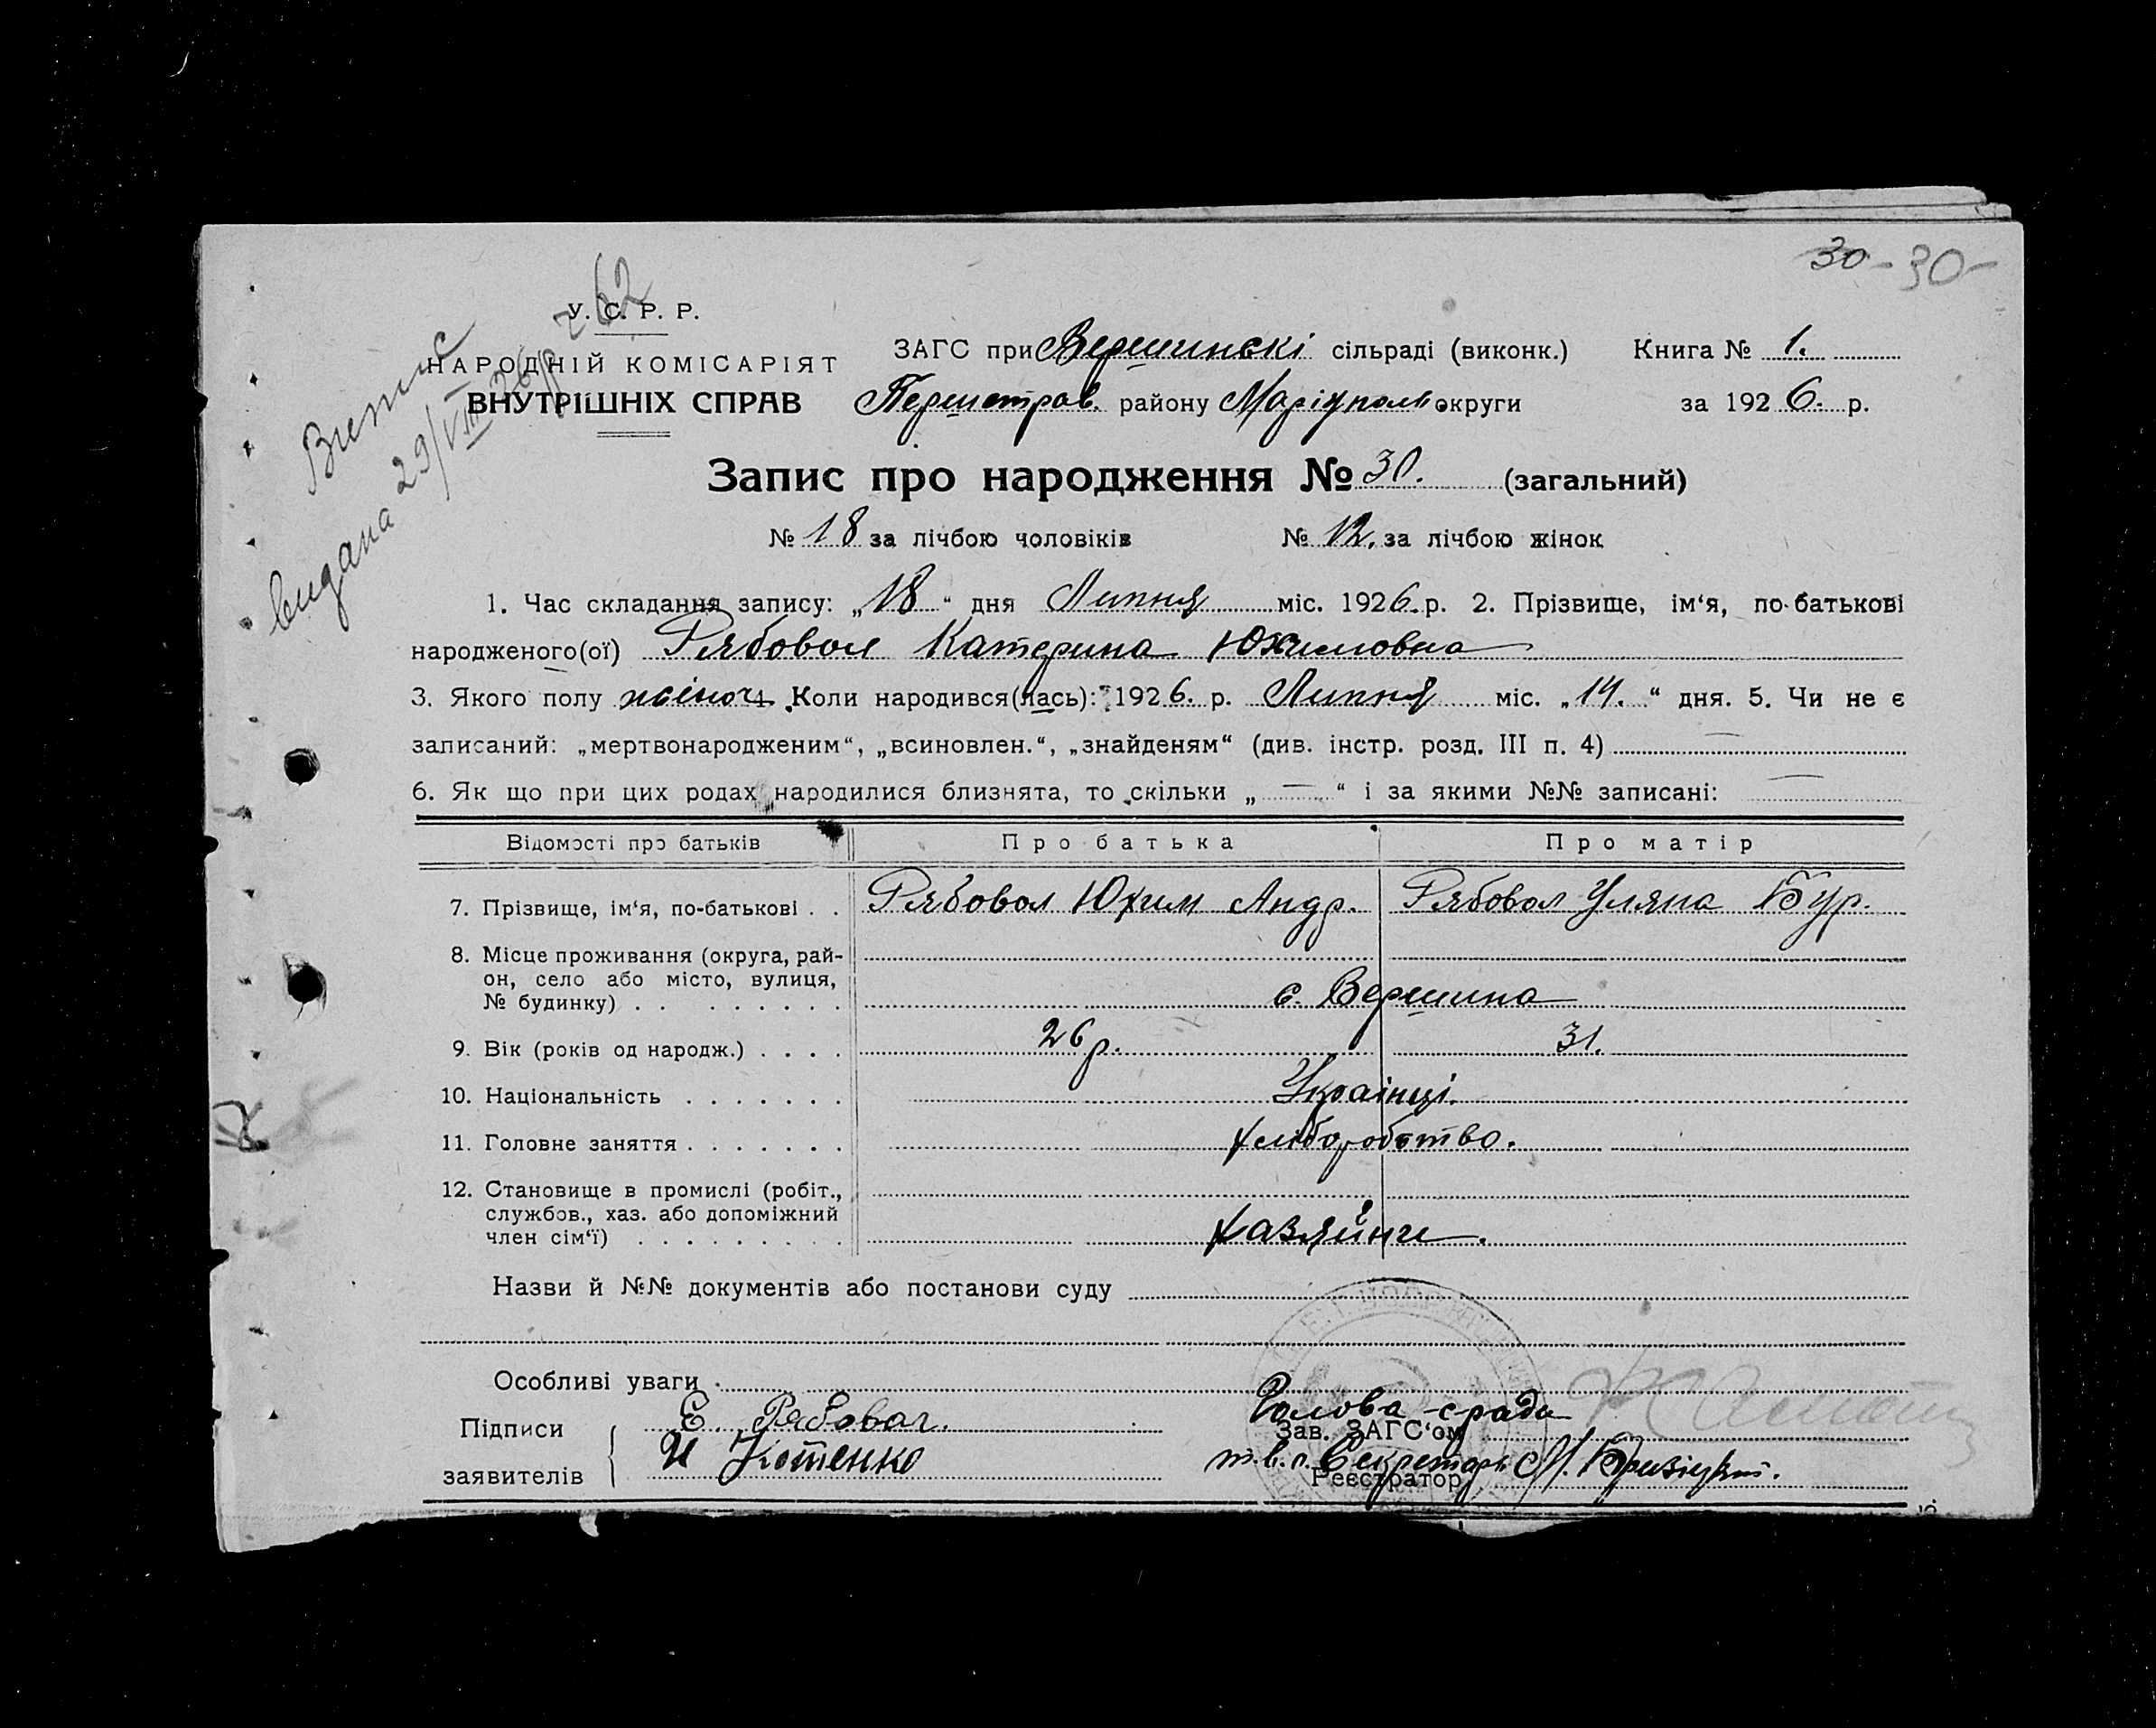 30 - 30 -
У. С. Р. Р.
НАРОДНІЙ КОМІСАРІЯТ
ВНУТРІШНІХ СПРАВ
Витис
видана 29/VIII 26 р 62
ЗАГС при Вершинскі сільраді (виконк.) Книга № 1.
Першотрав. району Маріупол округи за 1926. р.
Запис про народження № 30. (загальний)
№ 18 за лічбою чоловіків № 12. за лічбою жінок
1. Час складання запису: „18“ дня Липня міс. 1926. р. 2. Прізвище, ім‘я, по-батькові
народженого(ої) Рябовол Катерина Юхимовна
3. Якого полу жіноч 4. Коли народився(лась): 1926. р. Липня міс. „14.“ дня. 5. Чи не є
записаний: „мертвонародженим“, „всиновлен.“, „знайденям“ (див. інстр. розд. III п. 4) —
6. Як що при цих родах народилися близнята, то скільки „—“ і за якими №№ записані: —
Відомості про батьків Про батька Про матір
7. Прізвище, ім‘я, по-батькові . . Рябовол Юхим Андр. Рябовол Уляна Бур.
8. Місце проживання (округа, рай-
он, село або місто, вулиця,
№ будинку) . . . . . . . . с. Вершина
9. Вік (років од народж.) . . . . 26 р. 31.
10. Національність . . . . . . . Українці.
11. Головне заняття . . . . . . . Хліборобство.
12. Становище в промислі (робіт.,
службов., хаз. або допоміжний
член сім‘ї) . . . . . . . . . Хазяйни.
Назви й №№ документів або постанови суду
Особливі уваги
Підписи Е. Рябовол. Голова с-ради
Зав. ЗАГС‘ом
заявителів И Котенко т.в.п. Секретарь М.
Реєстратор